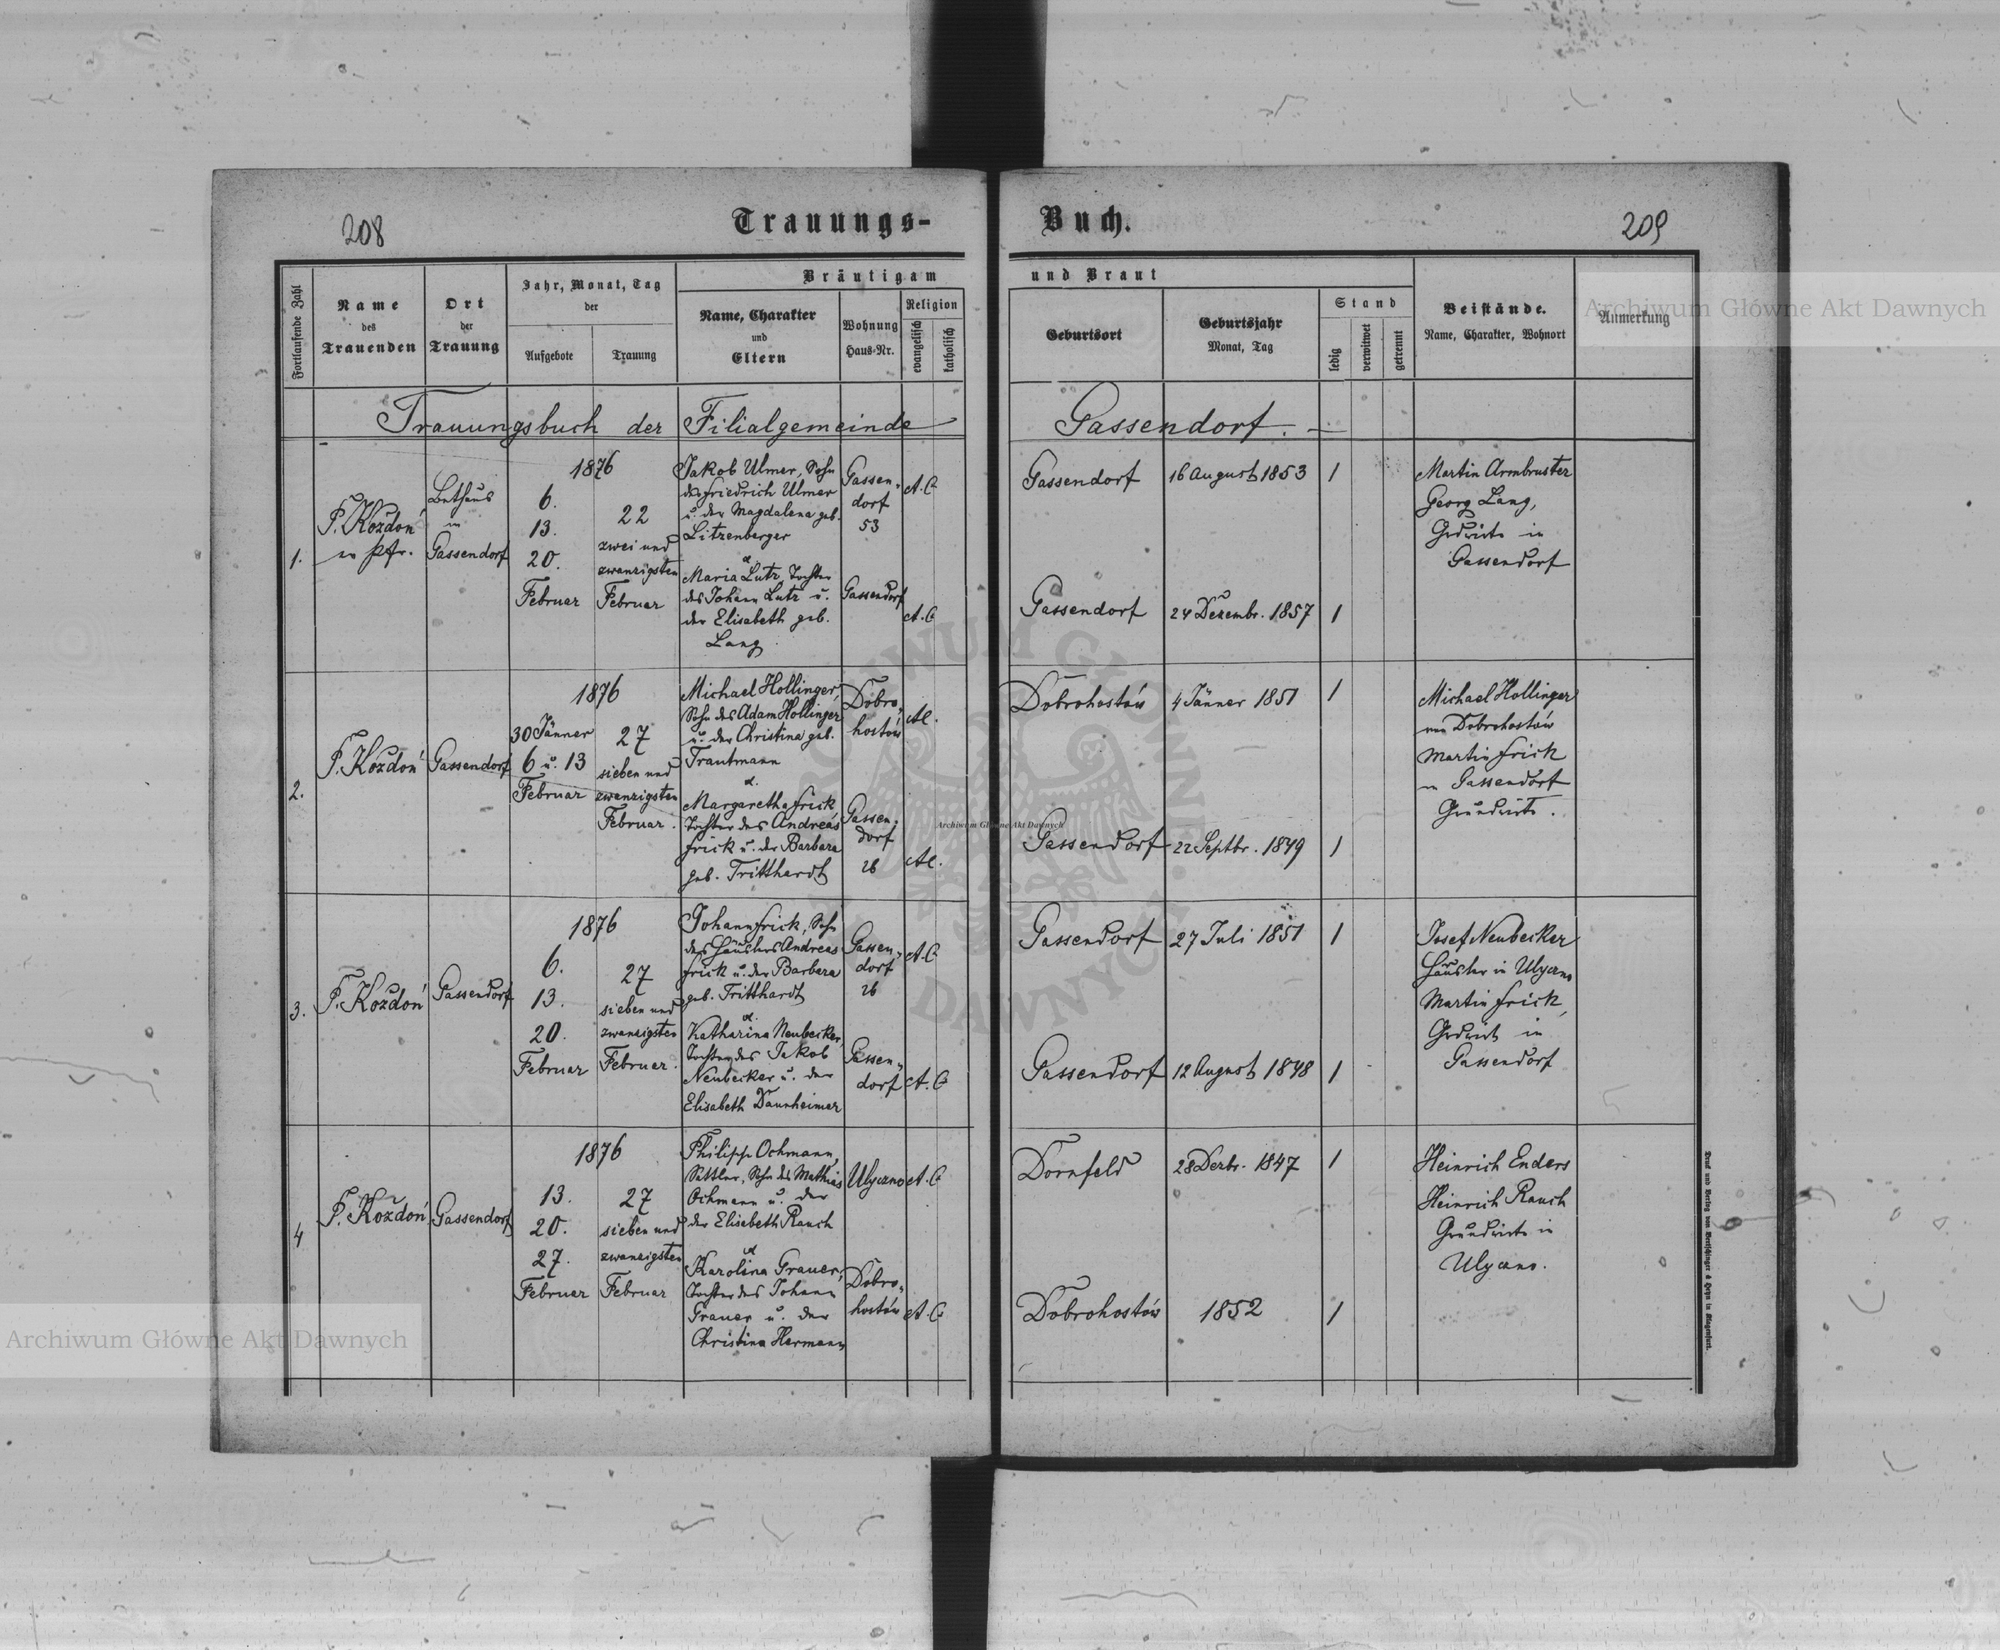 208
Trauungs-
Buch.
209
Fortlaufende Zahl
Name
des
Trauenden
Ort
der
Trauung
Jahr, Monat, Tag
der
Aufgebote
Trauung
Bräutigam
Name, Charakter
und
Eltern
Wohnung
Haus-Nr.
Religion
evangelisch
katholisch
und Braut
Geburtsort
Geburtsjahr
Monat, Tag
Stand
ledig
verwitwet
getrennt
Beistände.
Name, Charakter, Wohnort
Anmerkung
Trauungsbuch der Filialgemeinde
Gassendorf.
1.
F. Kozdoń
ev Pfr.
Bethaus
in
Gassendorf
1876
6.
13.
20.
Februar
22
zwei und
zwanzigsten
Februar
Jakob Ulmer, Sohn
des Friedrich Ulmer
u. der Magdalena geb.
Litzenberger
&
Maria Lutz, Tochter
des Johann Lutz u.
der Elisabeth geb.
Lang
Gassen-
dorf
53
A.C
Gassendorf
A.C
Gassendorf
16 August 1853
1
Gassendorf
24 Dezembr. 1857
1
Martin Armbruster
Georg Lang,
in
Gassendorf
2.
F. Kozdoń
Gassendorf
1876
30 Jänner
6 u. 13
Februar
27
sieben und
zwanzigsten
Februar.
Michael Hollinger,
Sohn des Adam Hollinger
u. der Christina geb.
Trautmann
&.
Margaretha Frick
Tochter des Andreas
Frick u. der Barbara
geb. Tritthardt
Dobro-
hostów
AC.
Gassen-
dorf
26
AC.
Dobrohostów
4 Jänner 1851
1
Gassendorf
22 Septbr. 1849
1
Michael Hollinger
Dobrohostów
Martin Frick
Gassendorf
Grundwirte.
3.
F. Kozdoń
Gassendorf
1876
6.
13.
20.
Februar
27
sieben und
zwanzigsten
Februar.
Johann Frick, Sohn
des Häuslers Andreas
Frick u. der Barbara
geb. Tritthardt
&.
Katharina Neubecker,
Tochter des Jakob
Neubecker u. der
Elisabeth Daunheimer
Gassen-
dorf
26
A.C
Gassen-
dorf
A.C
Gassendorf
27 Juli 1851
1
Gassendorf
12 August 1848
1
Josef Neubecker
Häusler in Ulyczno
Martin Frick,
in
Gassendorf
4
F. Kozdoń
Gassendorf
1876
13.
20.
27.
Februar
27
sieben und
zwanzigsten
Februar
Philipp Ochmann,
Sattler, Sohn des Mathias
Ochmann u. der
der Elisabeth Rauch
&
Karolina Grauer,
Tochter des Johann
Grauer u. der
Christina Hermann
Ulyczno
A.C
Dobro-
hostów
A.C
Dornfeld
28 Dezbr. 1847
1
Dobrohostów
1852
1
Heinrich Enders
Heinrich Rauch
Grundwirte in
Ulyczno.
Archiwum Główne Akt Dawnych
Archiwum Główne Akt Dawnych
Archiwum Główne Akt Dawnych
ARCHIWUM GŁÓWNE AKT DAWNYCH